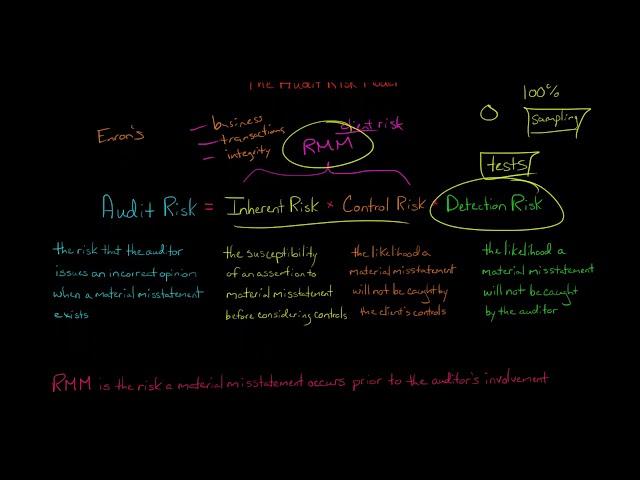 The Audit Risk Model
100%
Sampling
Enron's
business
transactions
integrity
client risk
RMM
tests
Audit Risk = Inherent Risk * Control Risk * Detection Risk
the risk that the auditor
issues an incorrect opinion
when a material misstatement
exists
the susceptibility
of an assertion to
material misstatement
before considering controls
the likelihood a
material misstatement
will not be caught by
the client's controls
the likelihood a
material misstatement
will not be caught
by the auditor
RMM is the risk a material misstatement occurs prior to the auditor's involvement